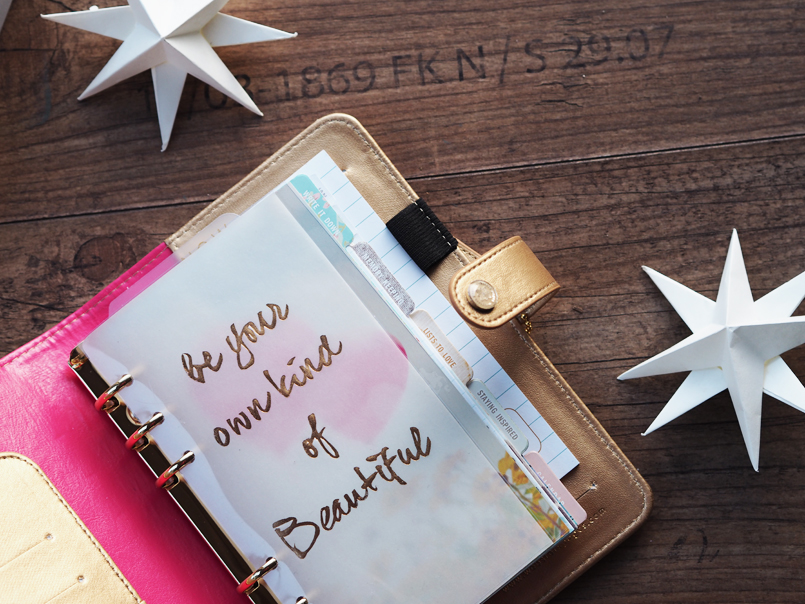 1869 FK N/S 29.07
be your
own kind
of
Beautiful
WRITE IT DOWN
LISTS TO LOVE
STAYING INSPIRED